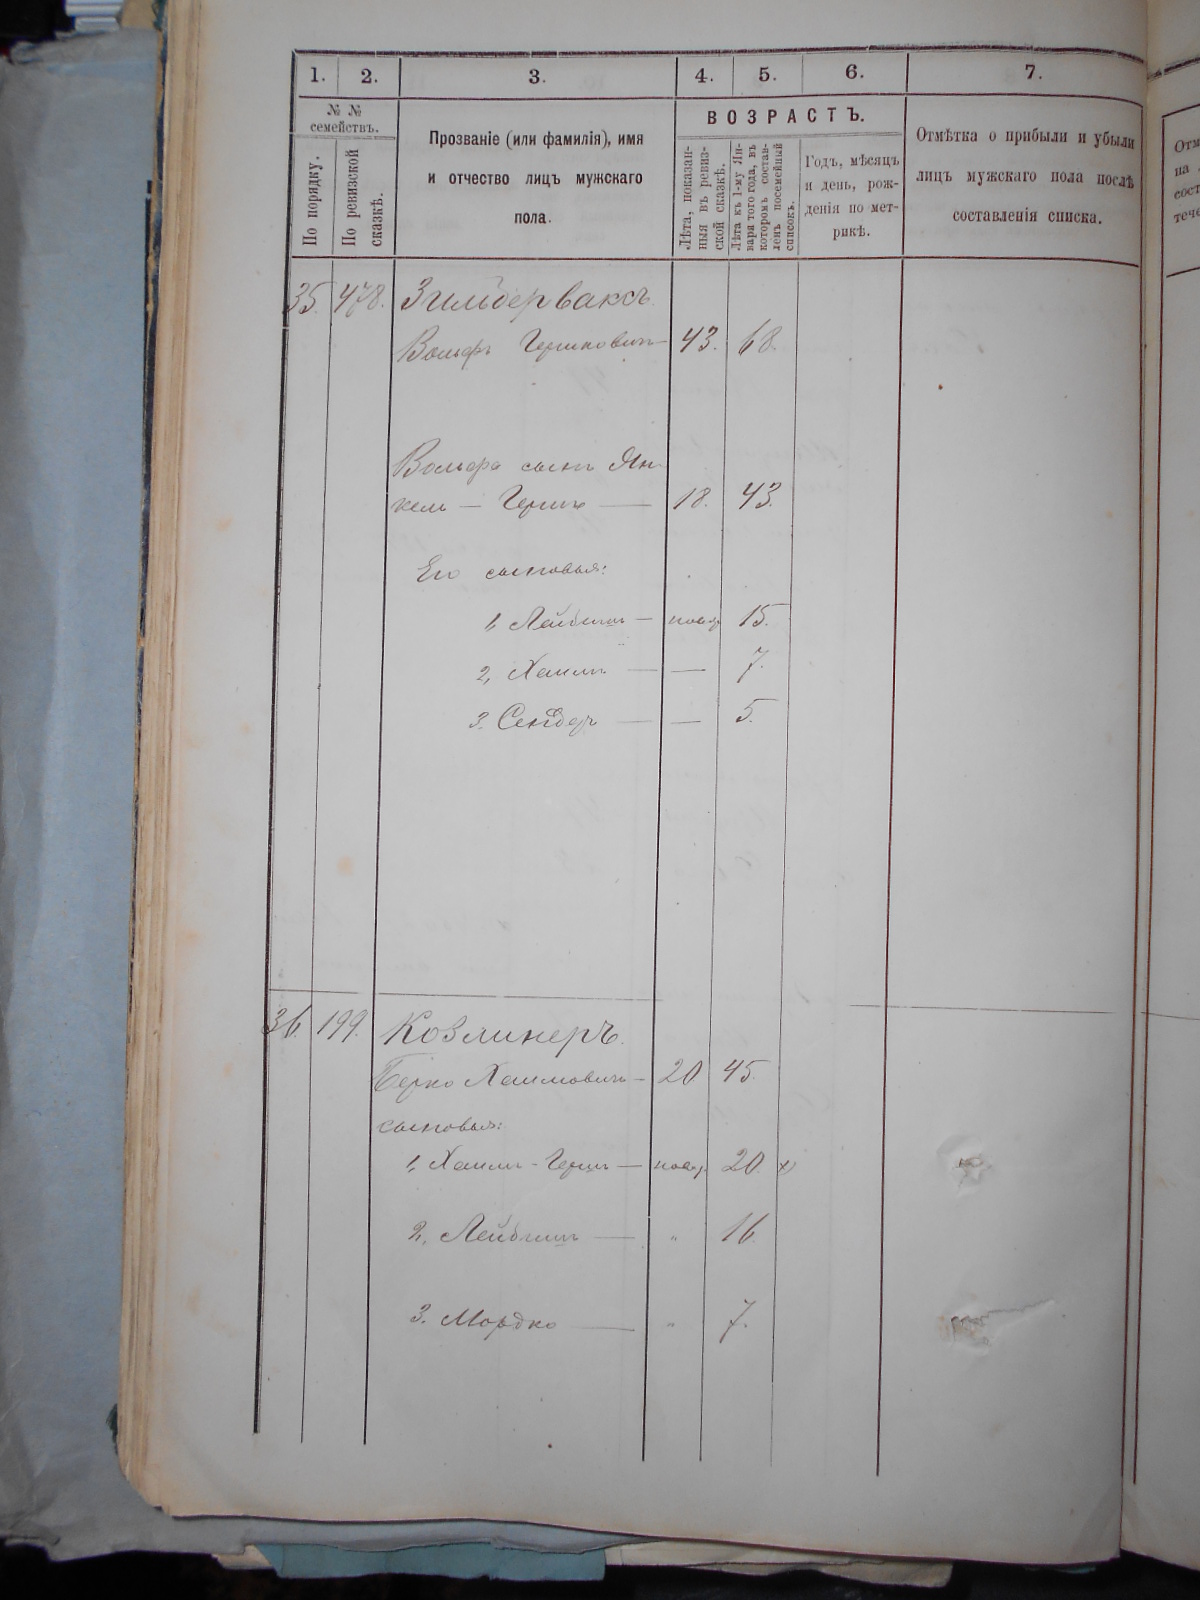 1. 2. 3. 4. 5. 6. 7.
№ №
семействъ.
По порядку.
По ревизской
сказкѣ.
Прозваніе (или фамилія), имя
и отчество лицъ мужскаго
пола.
ВОЗРАСТЪ.
Лѣта, показан-
ныя въ ревиз-
ской сказкѣ.
Лѣта къ 1-му Ян-
варя того года, въ
которомъ состав-
ленъ посемейный
списокъ.
Годъ, мѣсяцъ
и день, рож-
денія по мет-
рикѣ.
Отмѣтка о прибыли и убыли
лицъ мужскаго пола послѣ
составленія списка.
Отм
на
сост
тече
35. 478. Зильберваксъ.
Вольфъ Гершковичъ — 43. 68.
Вольфа сынъ Ян-
кель — Гершъ — 18. 43.
Его сыновья:
1, Лейбишъ — новор. 15.
2, Хаимъ — — 7.
3. Сендеръ — — 5.
36. 199. Козминеръ.
Берко Хаимовичъ — 20 45.
сыновья:
1, Хаимъ - Гершъ — новор. 20.
2, Лейбишъ — " 16
3. Мордко — " 7.